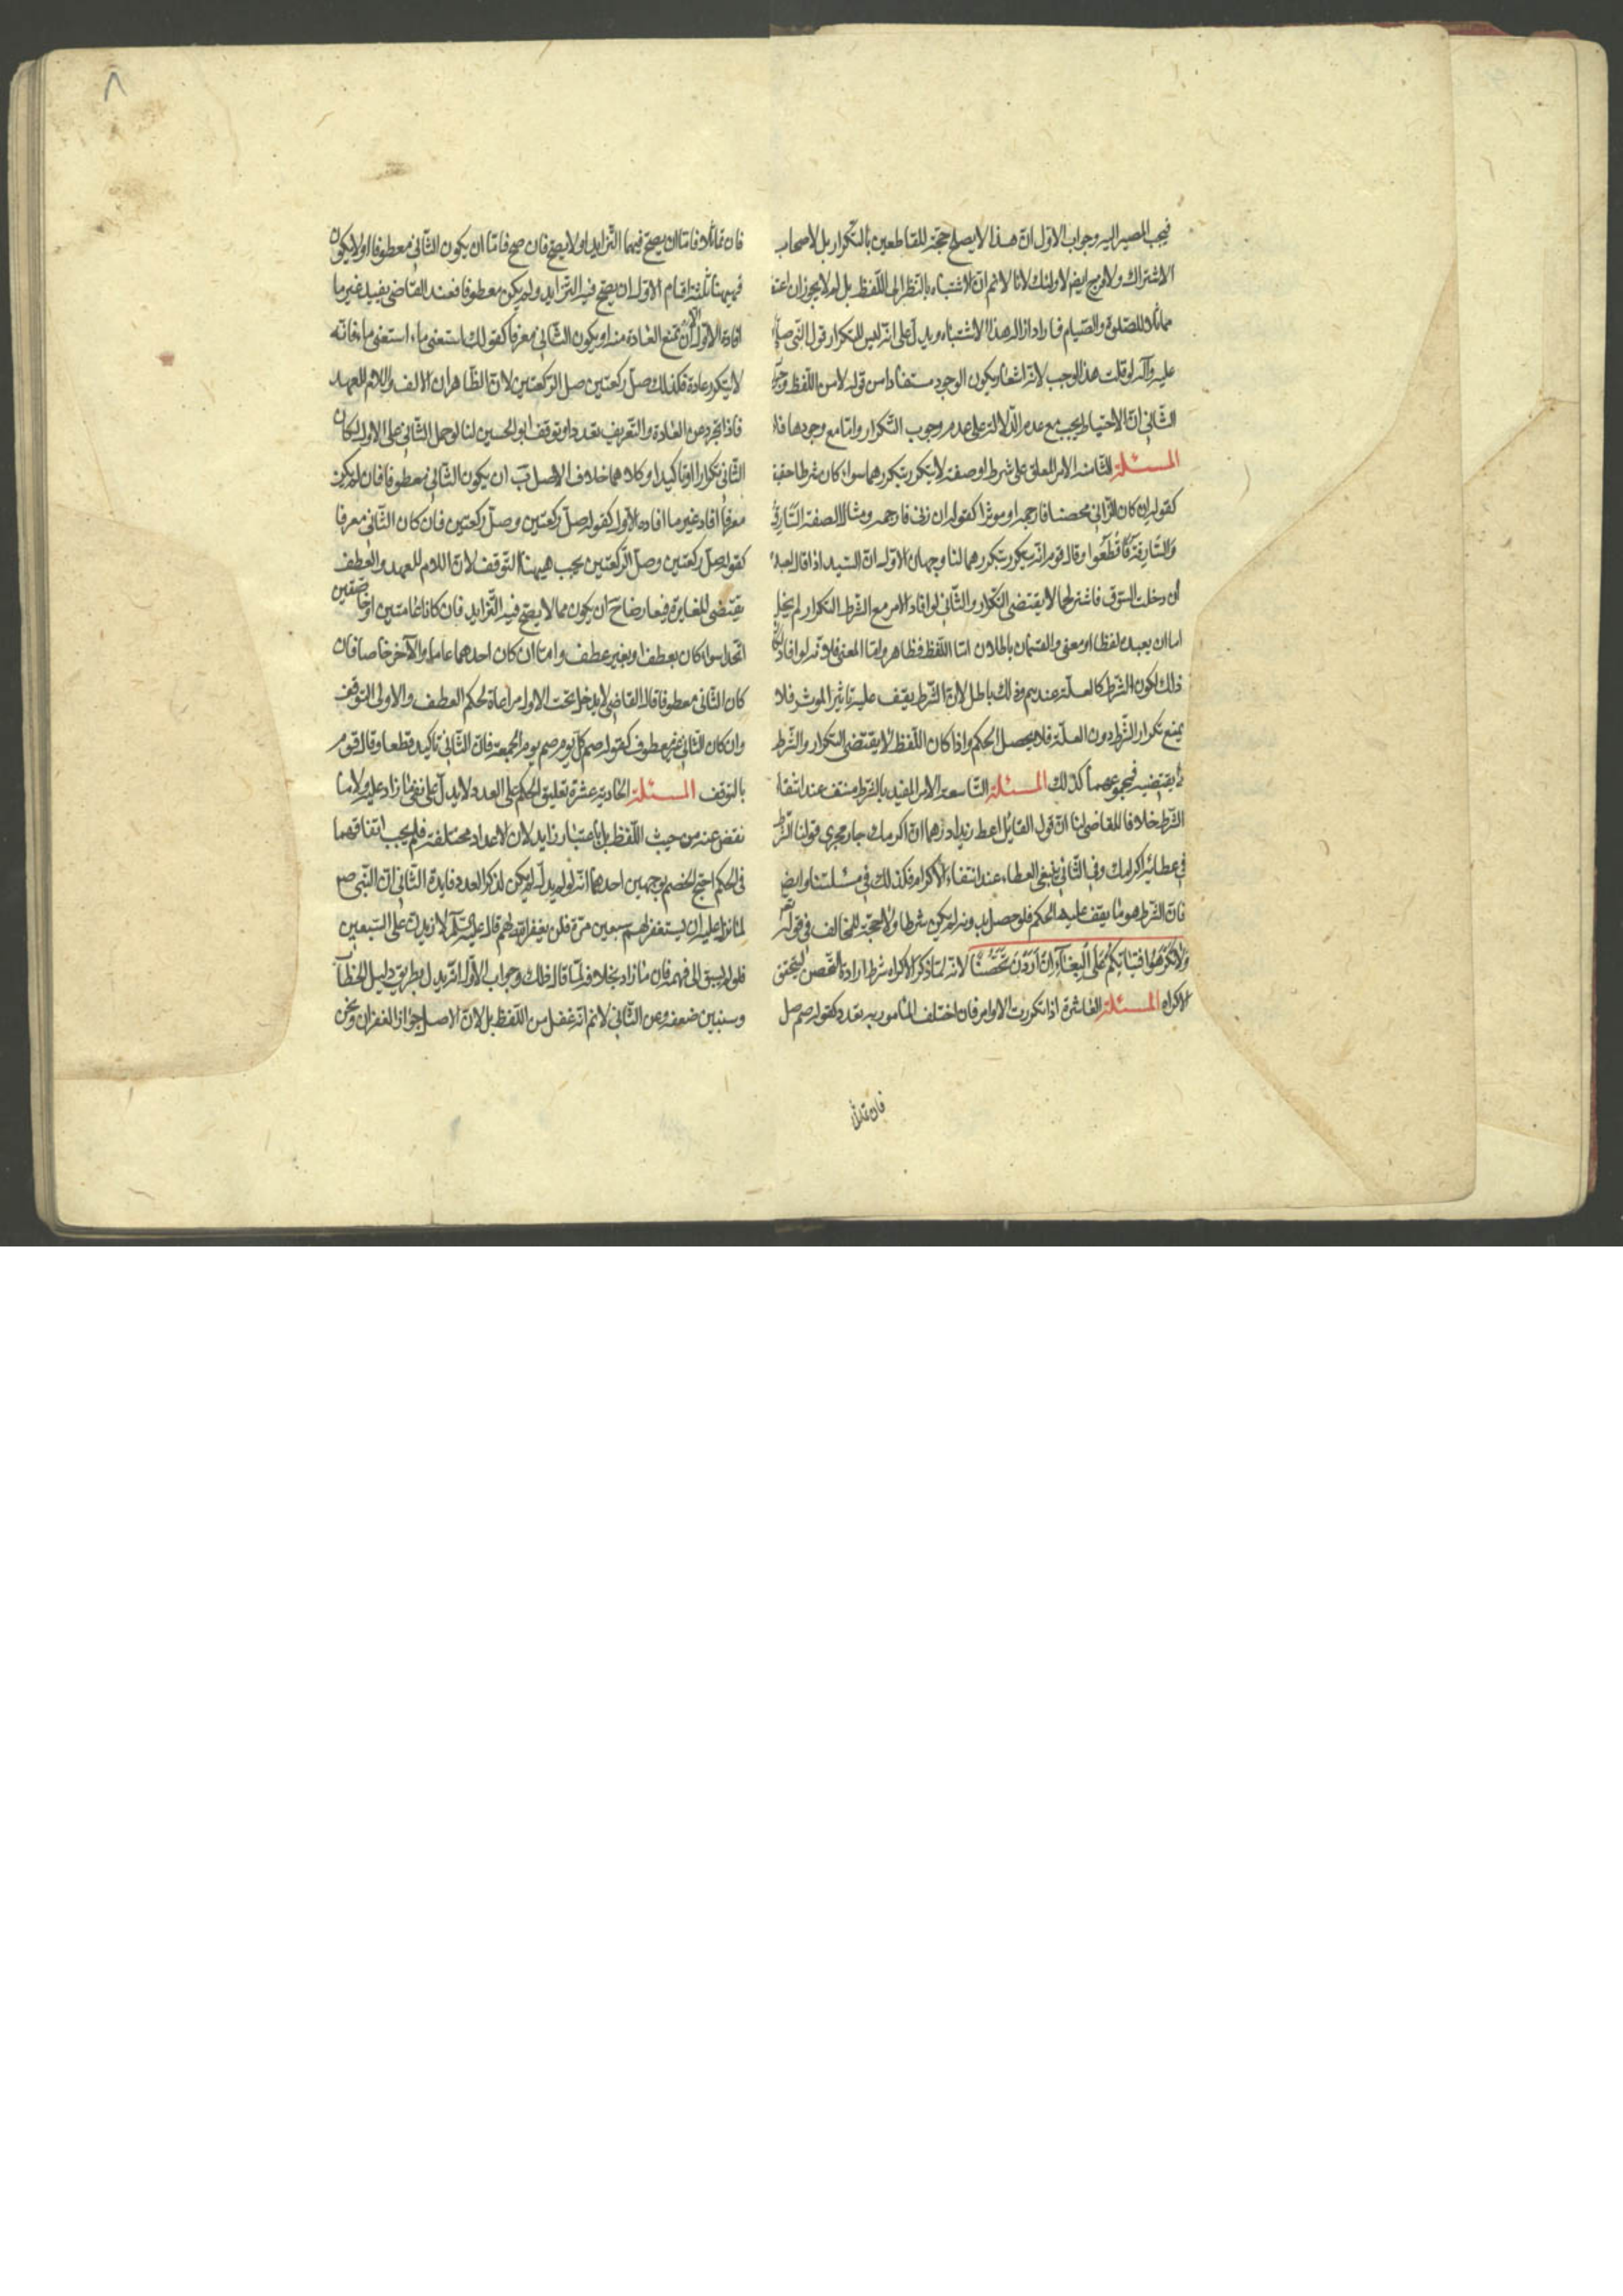 فيجب المصير اليه وجواب الاول ان هذا لا يصلح حجة للقاطعين بالتكرار بل لاصحاب
الاشتراك ولا فرج ايضم لاولئك لانا لانم ان الاشتباه بالنظر الى اللفظ بل لم لا يجوز ان اعتقد
مماثلا للصلوة والصيام فاراد ازالة هذا الاشتباه ويدل على انه ليس للتكرار قول النبى صلى
عليه وآله لو قلت هذا لوجب لانه اشعار بكون الوجوب مستفادا من قوله لا من اللفظ وعن
الثانى ان الاحتياط يجب مع عدم الدلالة على عدم وجوب التكرار واما مع وجودها فلا
المسئلة الثامنه الامر المعلق على شرط او صفة لا يتكرر بتكررهما سواء كان شرطا حقيقة
كقوله ان كان الزانى محصنا فارجمه او موثرا كقوله ان زنى فارجمه ومثال الصفة السارق
والسارقة فاقطعوا وقال قوم انه يتكرر بتكررهما لنا وجهان الاول ان السيد اذا قال لعبده
ان دخلت السوق فاشتر لحما لا يقتضى التكرار والثانى لو افاد الامر مع الشرط التكرار لم يخل
اما ان يفيده لفظا او معنى والقسمان باطلان اما اللفظ فظاهر واما المعنى فلانه لو افاد
ذلك لكون الشرط كالعلة عندهم وذلك باطل لان الشرط يقف عليه تاثير الموثر فلا
يمنع تكرار الشرط دون العلة فلا يحصل الحكم واذا كان اللفظ لا يقتضى التكرار والشرط
لا يقتضيه فمجموعهما كذلك المسئلة التاسعة الامر المقيد بالشرط منتف عند انتفاء
الشرط خلافا للقاضى لنا ان قول القايل اعط زيدا درهما ان اكرمك جار مجرى قولنا الشرط
فى عطائه اكرامك وفى الثانى ينتفى العطاء عند انتفاء الاكرام فكذلك فى مسئلتنا وايضم
فان الشرط هو ما يقف عليه الحكم فلو حصل بدونه لم يكن شرطا ولا حجة للمخالف فى قوله تعم
ولا تكرهوا فتياتكم على البغاء ان اردن تحصنا لانه لما ذكر الاكراه شرط ارادة التحصن ليتحقق
الاكراه المسئلة العاشرة اذا تكررت الاوامر فان اختلف المامور به تعدد كقوله صم صل
فان تماثلا
٨
فان تماثلا فاما ان يصح فيهما التزايد او لا يصح فان صح فاما ان يكون الثانى معطوفا او لا يكون
فهيهنا ثلثة اقسام الاول ان يصح فيه التزايد ولم يكن معطوفا فعند القاضى يفيد غير ما
افاده الاول الا ان تمنع العادة منه او يكون الثانى معرفا كقولك اسقنى ماء اسقنى ماء فانه
لا يتكرر عادة فكذلك صل ركعتين صل الركعتين لان الظاهر ان الالف واللام للعهد
فاذا تجرد عن العادة والتعريف تعدد او توقف ابو الحسين لنا لو حمل الثانى على الاول لكان
الثانى تكرارا او تاكيدا وكلاهما خلاف الاصل ب ان يكون الثانى معطوفا فان لم يكن
معرفا افاد غير ما افاده الاول كقوله صل ركعتين وصل ركعتين فان كان الثانى معرفا
كقوله صل ركعتين وصل الركعتين يجب هيهنا التوقف لان اللام للعهد والعطف
يقتضى المغايرة فيعارضا ج ان يكون مما لا يصح فيه التزايد فان كانا عامتين او خاصتين
اتحد سواء كان بعطف او بغير عطف واما ان كان احدهما عاما والآخر خاصا فان
كان الثانى معطوفا قال القاضى لا يدخل تحت الاول مراعاة لحكم العطف والاولى التوقف
وان كان الثانى غير معطوف كقوله صم كل يوم صم يوم الجمعة فان الثانى تاكيد قطعا وقال قوم
بالتوقف المسئلة الحادية عشرة تعليق الحكم على العدد لا يدل على نفى ما زاد عليه ولا ما
نقض عنه من حيث اللفظ بل باعتبار زايد لان الاعداد مختلفة فلم يجب اتفاقهما
فى الحكم احتج الخصم بوجهين احدهما انه لو لم يدل لم يكن لذكر العدد فايدة الثانى ان النبى ص
لما نزل عليه ان يستغفر لهم سبعين مرة فلن يغفر الله لهم قال عليه السلم لازيدن على السبعين
فلو لم يسبق الى فهمه فان ما زاد بخلافه لما قال ذلك وجواب الاول انه يدل بطريق دليل الخطاب
وسنبين ضعفه وعن الثانى لانم انه عقل من اللفظ بل لان الاصل جواز الغفران ونحن